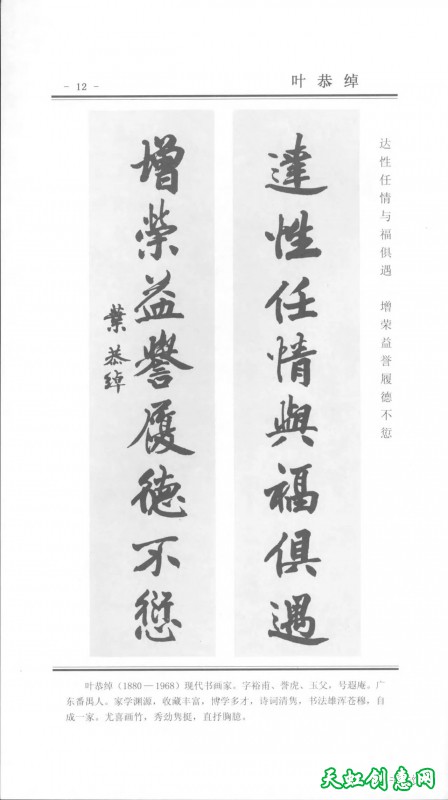 - 12 -
叶恭绰
达性任情与福俱遇 增荣益誉履德不愆
達性任情與福俱遇
增榮益譽履德不愆
葉恭綽
叶恭绰（1880—1968）现代书画家。字裕甫、誉虎、玉父，号遐庵。广
东番禺人。家学渊源，收藏丰富，博学多才，诗词清隽，书法雄浑苍穆，自
成一家。尤喜画竹，秀劲隽挺，直抒胸臆。
天虹创意网